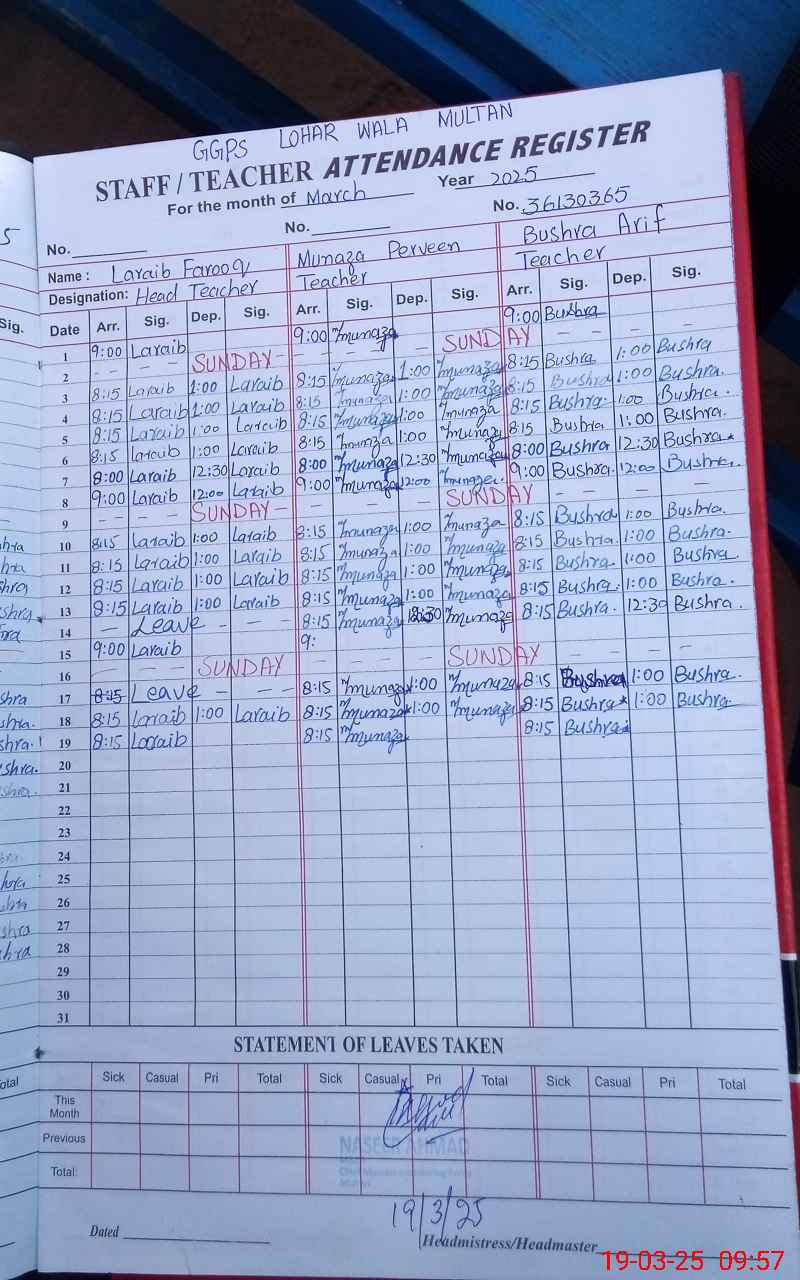 GGPS LOHAR WALA MULTAN
STAFF / TEACHER ATTENDANCE REGISTER
For the month of March Year 2025
No. No. No. 36130365
Name : Laraib Farooq Munaza Perveen Bushra Arif
Designation: Head Teacher Teacher Teacher
Date Arr. Sig. Dep. Sig. Arr. Sig. Dep. Sig. Arr. Sig. Dep. Sig.
1 9:00 Laraib 9:00 Munaza 9:00 Bushra
2 - - SUNDAY - - - - - SUNDAY - - -
3 8:15 Laraib 1:00 Laraib 8:15 Munaza 1:00 Munaza 8:15 Bushra 1:00 Bushra
4 8:15 Laraib 1:00 Laraib 8:15 Munaza 1:00 Munaza 8:15 Bushra 1:00 Bushra.
5 8:15 Laraib 1:00 Laraib 8:15 Munaza 1:00 Munaza 8:15 Bushra. 1:00 Bushra.
6 8:15 Laraib 1:00 Laraib 8:15 Munaza 1:00 Munaza 8:15 Bushra 1:00 Bushra.
7 8:00 Laraib 12:30 Laraib 8:00 Munaza 12:30 Munaza 8:00 Bushra 12:30 Bushra
8 9:00 Laraib 12:00 Laraib 9:00 Munaza 12:00 Munaza 9:00 Bushra. 12:00 Bushra.
9 - - SUNDAY - - - - - SUNDAY - -
10 8:15 Laraib 1:00 Laraib 8:15 Munaza 1:00 Munaza 8:15 Bushra 1:00 Bushra.
11 8:15 Laraib 1:00 Laraib 8:15 Munaza 1:00 Munaza 8:15 Bushra. 1:00 Bushra.
12 8:15 Laraib 1:00 Laraib 8:15 Munaza 1:00 Munaza 8:15 Bushra 1:00 Bushra
13 8:15 Laraib 1:00 Laraib 8:15 Munaza 1:00 Munaza 8:15 Bushra. 1:00 Bushra.
14 - Leave - - - 8:15 Munaza 12:30 Munaza 8:15 Bushra. 12:30 Bushra.
15 9:00 Laraib 9:
16 - - SUNDAY - - - - - SUNDAY - - -
17 8:15 Leave - - - 8:15 Munaza 1:00 Munaza 8:15 Bushra 1:00 Bushra.
18 8:15 Laraib 1:00 Laraib 8:15 Munaza 1:00 Munaza 8:15 Bushra 1:00 Bushra
19 8:15 Laraib 8:15 Munaza 8:15 Bushra
20
21
22
23
24
25
26
27
28
29
30
31
STATEMENT OF LEAVES TAKEN
Sick Casual Pri Total Sick Casual Pri Total Sick Casual Pri Total
This Month
Previous
Total:
NASEER AHMAD
19/3/25
Dated
Headmistress/Headmaster
19-03-25 09:57